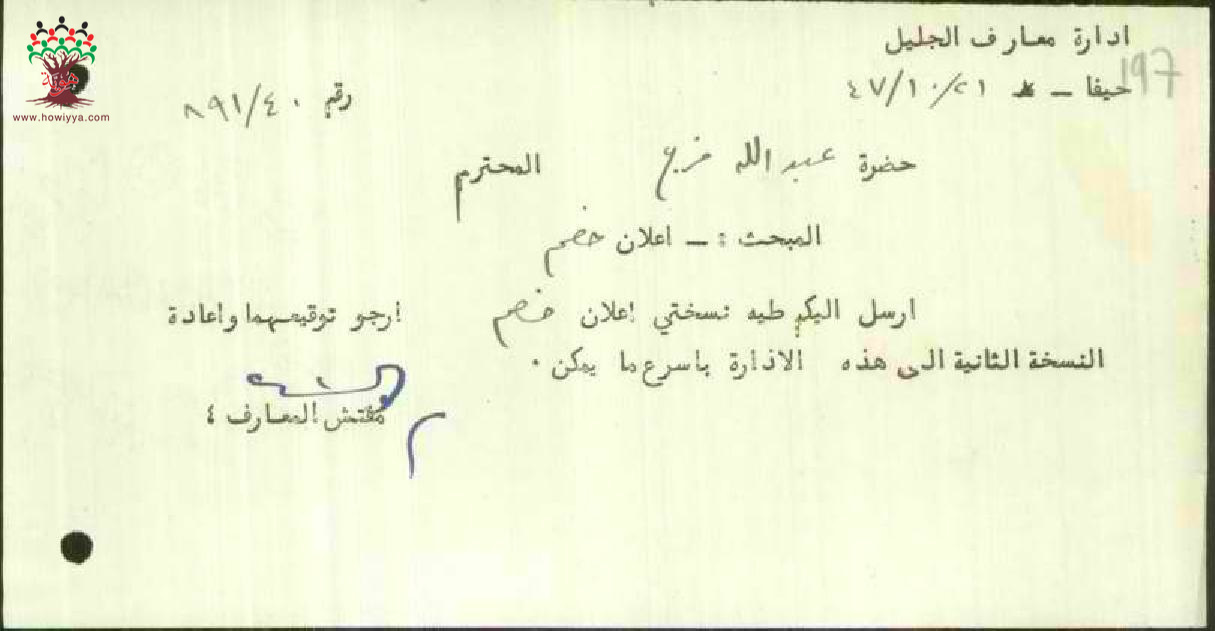 ادارة معارف الجليل
197
حيفا – ٤٧/١٠/٢١
رقم ٨٩١/٤٠
حضرة عبد الله فرج المحترم
المبحث :– اعلان خصم
ارسل اليكم طيه نسختي إعلان خصم إرجو توقيعهما واعادة
النسخة الثانية الى هذه الادارة باسرع ما يمكن ٠
مفتش المعارف ٤
هوية
www.howiyya.com